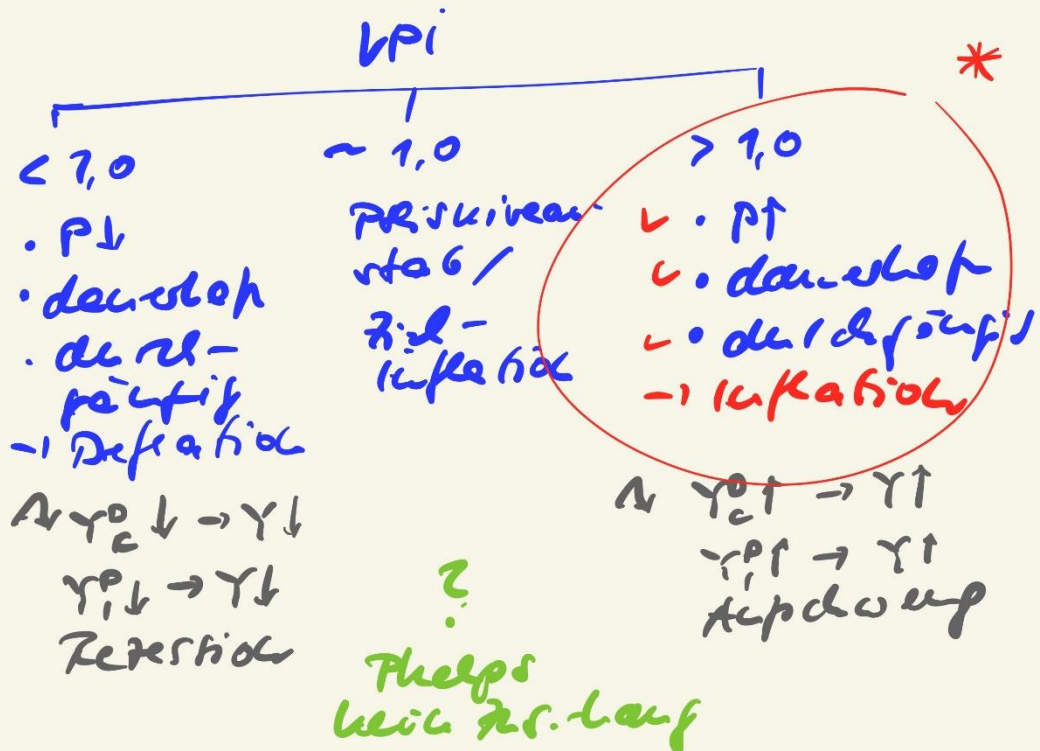 VPI
*
< 1,0
• P↓
• dauerhaft
• durch-
gängig
→ Deflation
Y^D_C ↓ → Y↓
Y^D_I ↓ → Y↓
Rezession
~ 1,0
Preisniveau-
stab/
Ziel-
inflation
?
Phelps
kein Zus.hang
> 1,0
✓ • P↑
✓ • dauerhaft
✓ • durchgängig
→ Inflation
Y^D_C ↑ → Y↑
Y^D_I ↑ → Y↑
Aufschwung